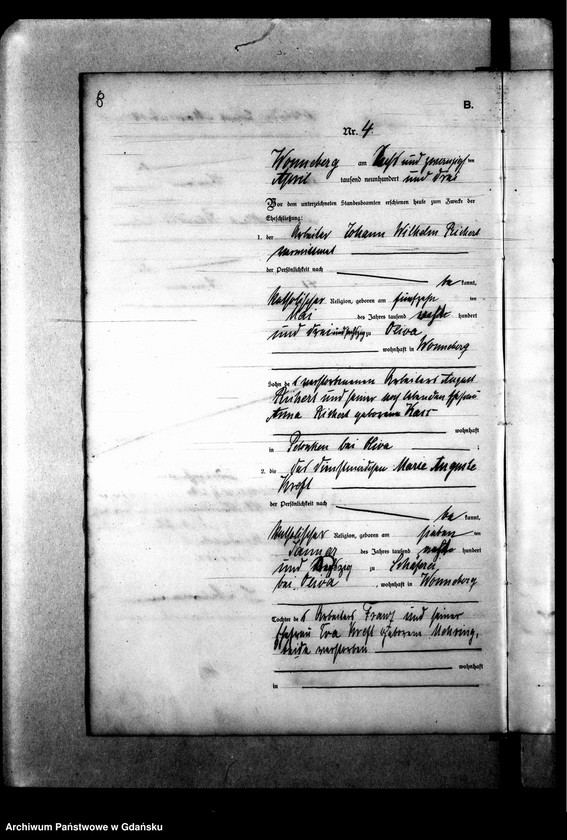 8
B.
Nr. 4
Wonneberg am sechs und zwanzigsten
April tausend neunhundert und drei
Vor dem unterzeichneten Standesbeamten erschienen heute zum Zwecke der
Eheschließung:
1. der Arbeiter Johann Wilhelm Richert
der Persönlichkeit nach
be kannt,
katholischer Religion, geboren am fünfzehn ten
Mai des Jahres tausend acht hundert
und drei zu Oliva
wohnhaft in Wonneberg
Sohn des verstorbenen Arbeiters August
Richert und seiner noch lebenden Ehefrau
Anna Richert geborene
wohnhaft
in Pelonken bei Oliva ;
2. die Dienstmädchen Marie Auguste
der Persönlichkeit nach
be kannt,
katholischer Religion, geboren am sieben ten
Januar des Jahres tausend acht hundert
und zu Schäferei
bei Oliva , wohnhaft in Wonneberg
Tochter des Arbeiters Franz und seiner
Ehefrau Eva geborene
beide verstorben
wohnhaft
in
Archiwum Państwowe w Gdańsku